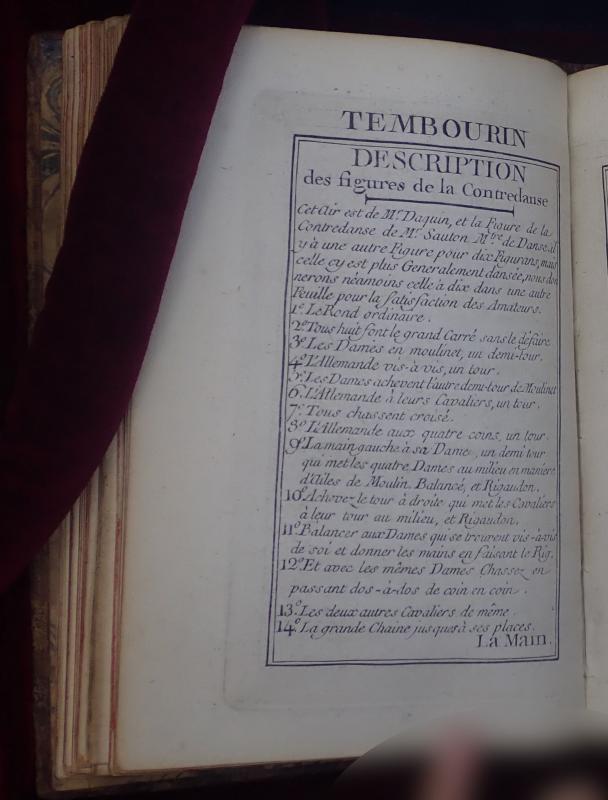 TEMBOURIN
DESCRIPTION
des figures de la Contredanse
Cet Air est de Mr. Daquin, et la Figure de la
Contredanse de Mr. Sauton Mtre. de Danse, il
y à une autre Figure pour dix Figurans, mais
celle cy est plus Generalement dansée, nous don
nerons néamoins celle à dix dans une autre
Feuille pour la satisfaction des Amateurs.
1º. Le Rond ordinaire.
2º. Tous huit font le grand Carré sans le défaire.
3º. Les Dames en moulinet, un demi-tour.
4º. L'Allemande vis-à-vis, un tour.
5º. Les Dames achevent l'autre demi-tour de Moulinet
6º. L'Allemande à leurs Cavaliers, un tour.
7º. Tous chassent croisé.
8º. L'Allemande aux quatre coins, un tour.
9º. La main gauche à sa Dame, un demi tour
qui met les quatre Dames au milieu en maniere
d'Ailes de Moulin. Balancé, et Rigaudon.
10º. Achevez le tour à droite qui met les Cavaliers
à leur tour au milieu, et Rigaudon.
11º. Balancer aux Dames qui se trouvent vis-à-vis
de soi et donner les mains en faisant le Rig.
12º. Et avec les mêmes Dames Chassez en
passant dos-à-dos de coin en coin.
13º. Les deux autres Cavaliers de même.
14º. La grande Chaine jusques à ses places.
La Main.